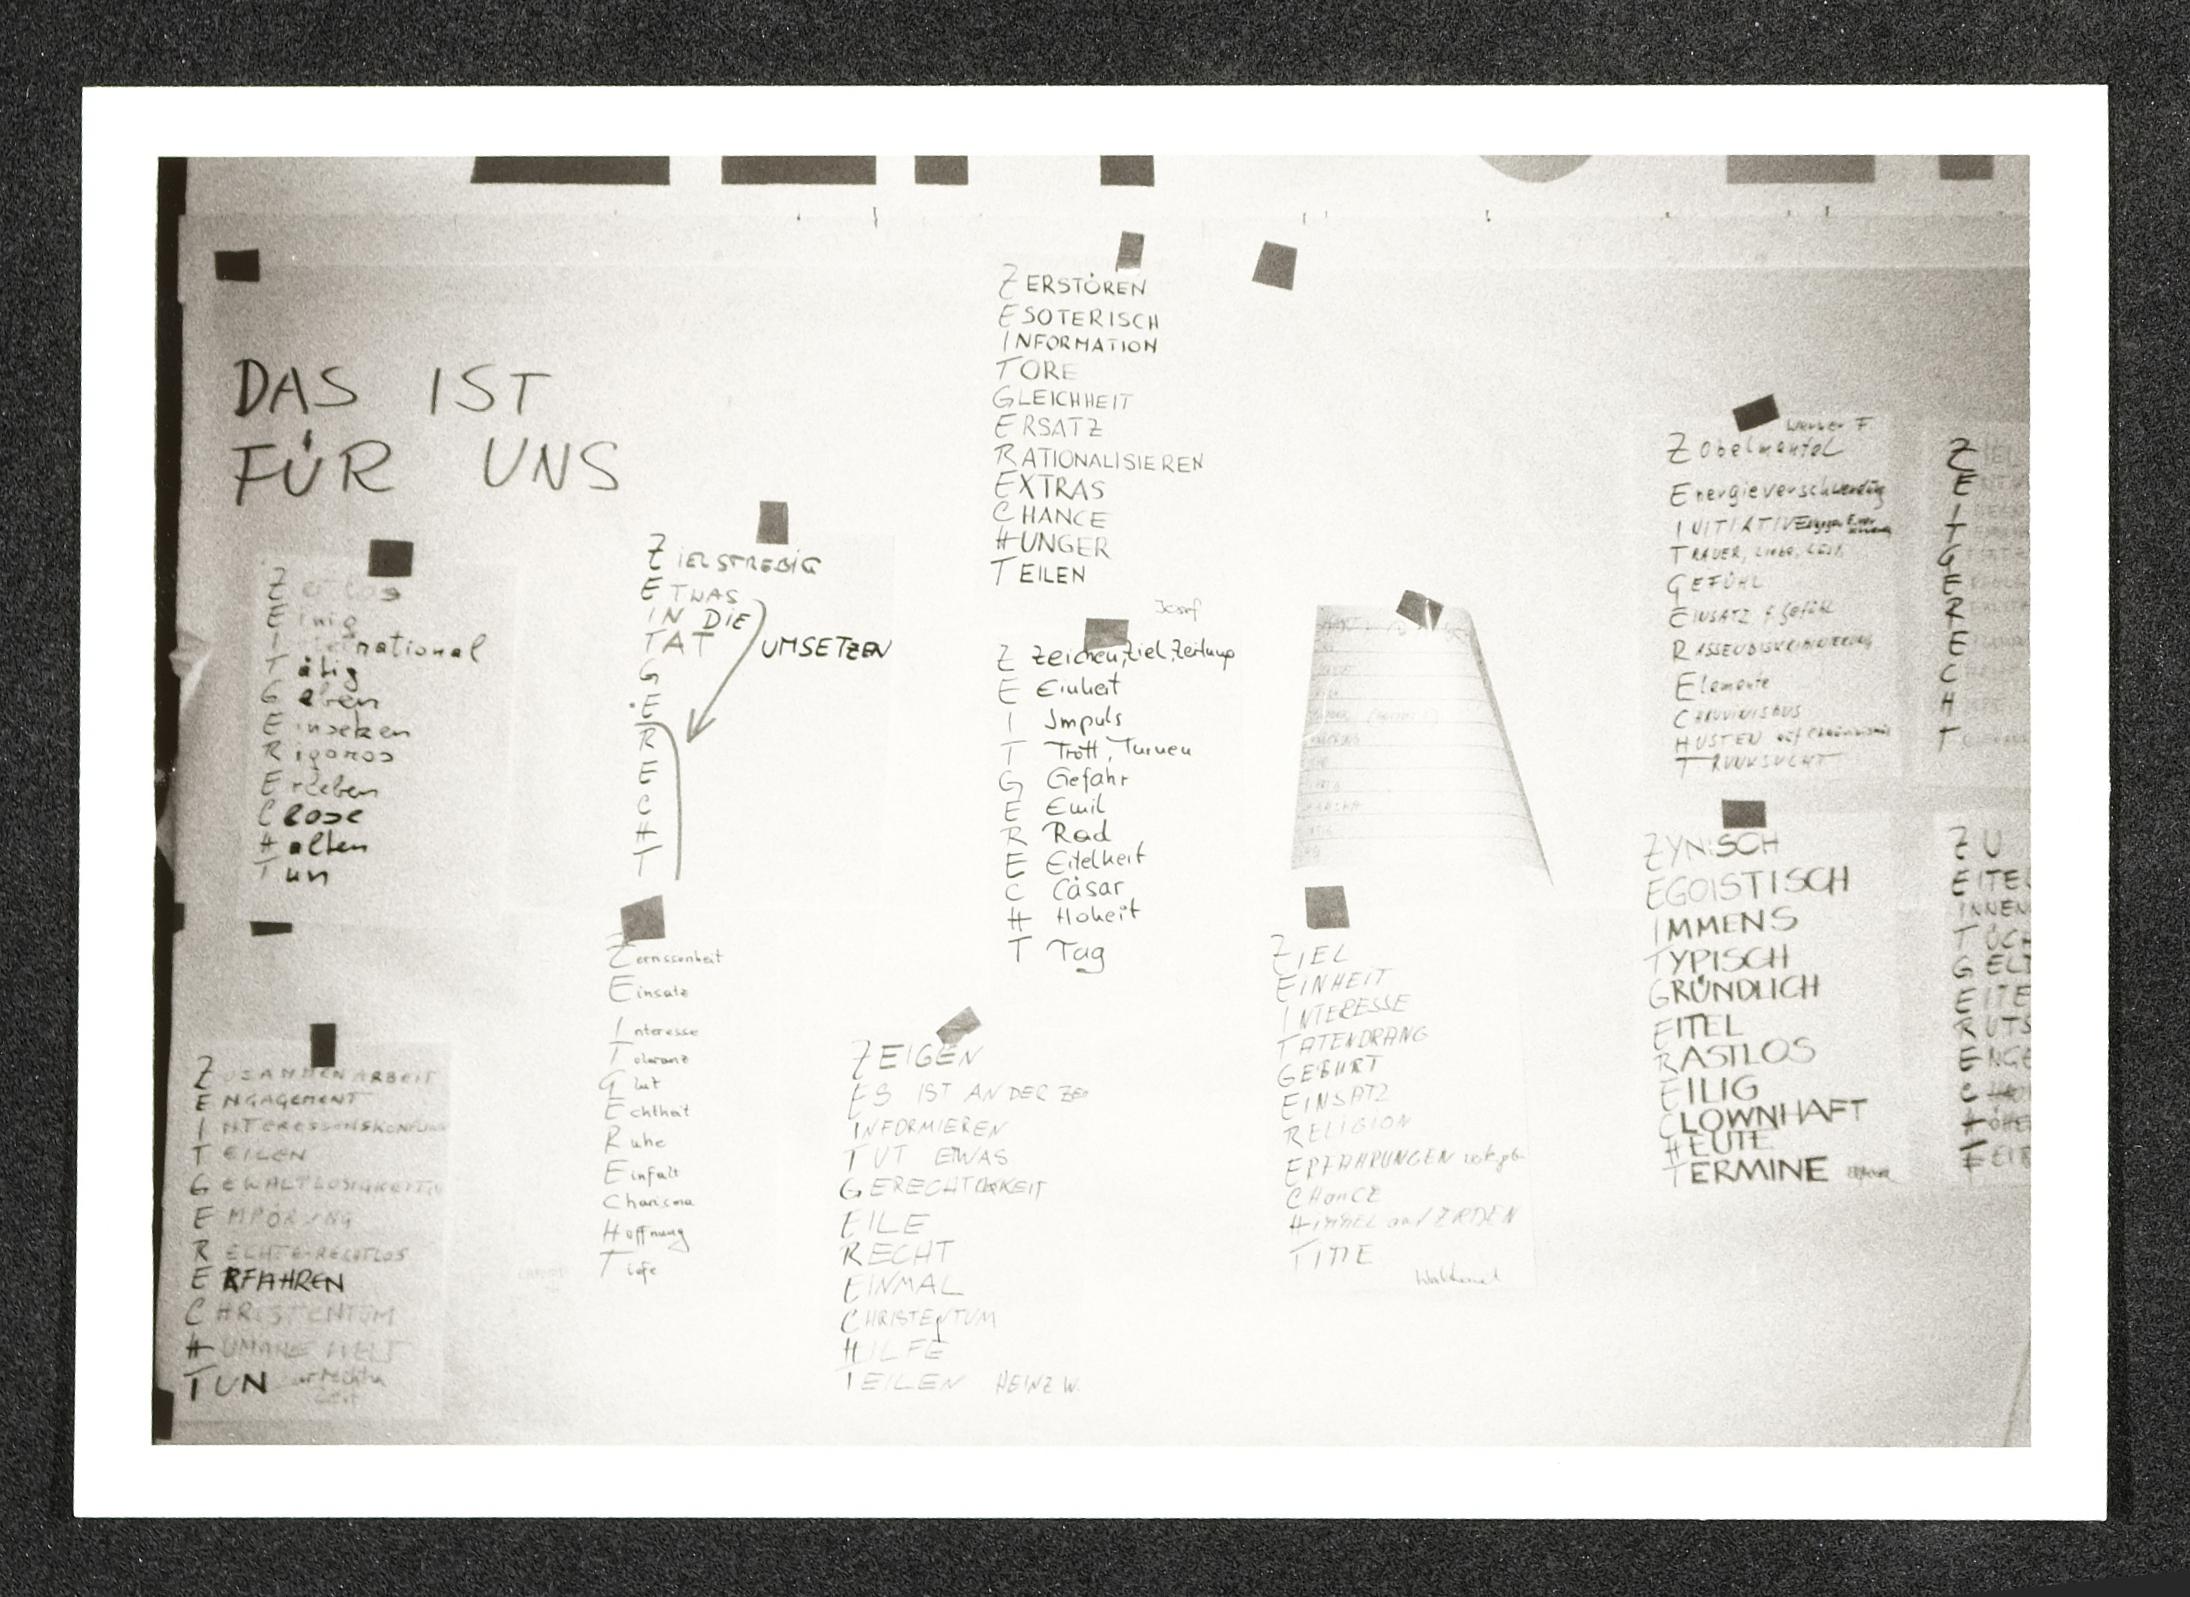 DAS IST
FÜR UNS
Einig
International
Tätig
Geben
Einsetzen
Rigoros
Erleben
Close
Halten
Tun
ZUSAMMENARBEIT
ENGAGEMENT
TEILEN
EMPÖRUNG
RECHTE-RECHTLOS
ERFAHREN
CHRISTENTUM
HUMANE WELT
TUN zur rechten
Zeit
ZIELSTREBIG
ETWAS
IN DIE
TAT
UMSETZEN
G
E
R
E
C
H
T
Zerrissenheit
Einsatz
Interesse
Toleranz
Glut
Echtheit
Ruhe
Einfalt
Charisma
Hoffnung
Tiefe
ZERSTÖREN
ESOTERISCH
INFORMATION
TORE
GLEICHHEIT
ERSATZ
RATIONALISIEREN
EXTRAS
CHANCE
HUNGER
TEILEN
Josef
Z Zeichen, Ziel, Zeitung
E Einheit
I Impuls
T Trott, Turnen
G Gefahr
E Emil
R Rad
E Eitelkeit
C Cäsar
H Hoheit
T Tag
ZEIGEN
ES IST AN DER ZEI
INFORMIEREN
TUT ETWAS
GERECHTIGKEIT
EILE
RECHT
EINMAL
CHRISTENTUM
HILFE
TEILEN HEINZ W.
ZIEL
EINHEIT
INTERESSE
TATENDRANG
GEBURT
EINSATZ
RELIGION
ERFAHRUNGEN
CHANCE
HIMMEL auf ERDEN
TIME
Werner F.
Zobelmantel
Energieverschwendung
INITIATIVE
TRAUER, LIEBE, LEID
GEFÜHL
EINSATZ f. Gefühl
RASSENDISKRIMINIERUNG
Elemente
CHAUVINISMUS
HUSTEN auf Chauvinismus
TRUNKSUCHT
ZYNISCH
EGOISTISCH
IMMENS
TYPISCH
GRÜNDLICH
EITEL
RASTLOS
EILIG
CLOWNHAFT
HEUTE
TERMINE
ZIEL
E
I
T
G
E
R
E
C
H
T
ZU
EITEL
INNEN
TÖCH
GELD
EITE
RUTS
ENGE